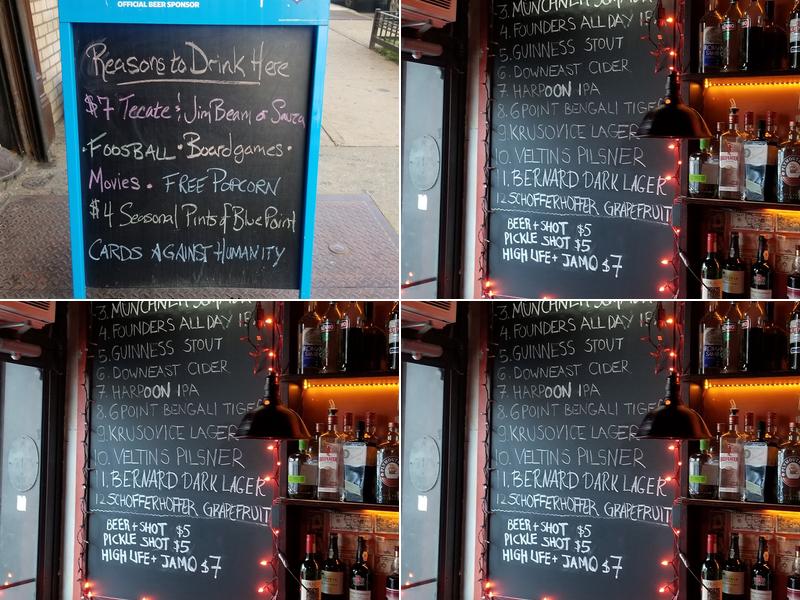 OFFICIAL BEER SPONSOR
Reasons to Drink Here
$7 Tecate & Jim Beam or Sauza
• FOOSBALL • Boardgames •
Movies • FREE POPCORN
$4 Seasonal Pints of Blue Point
CARDS AGAINST HUMANITY
3. MUNCHNER
4. FOUNDERS ALL DAY IP
5. GUINNESS STOUT
6. DOWNEAST CIDER
7 HARPOON IPA
8. 6POINT BENGALI TIGE
9. KRUSOVICE LAGER
10. VELTINS PILSNER
11. BERNARD DARK LAGER
12 SCHOFFERHOFFER GRAPEFRUIT
BEER + SHOT $5
PICKLE SHOT $5
HIGH LIFE + JAMO $7
3. MUNCHNER
4. FOUNDERS ALL DAY IP
5. GUINNESS STOUT
6. DOWNEAST CIDER
7 HARPOON IPA
8. 6POINT BENGALI TIGE
9. KRUSOVICE LAGER
10. VELTINS PILSNER
11. BERNARD DARK LAGER
12 SCHOFFERHOFFER GRAPEFRUIT
BEER + SHOT $5
PICKLE SHOT $5
HIGH LIFE + JAMO $7
3. MUNCHNER
4. FOUNDERS ALL DAY IP
5. GUINNESS STOUT
6. DOWNEAST CIDER
7 HARPOON IPA
8. 6POINT BENGALI TIGE
9. KRUSOVICE LAGER
10. VELTINS PILSNER
11. BERNARD DARK LAGER
12 SCHOFFERHOFFER GRAPEFRUIT
BEER + SHOT $5
PICKLE SHOT $5
HIGH LIFE + JAMO $7